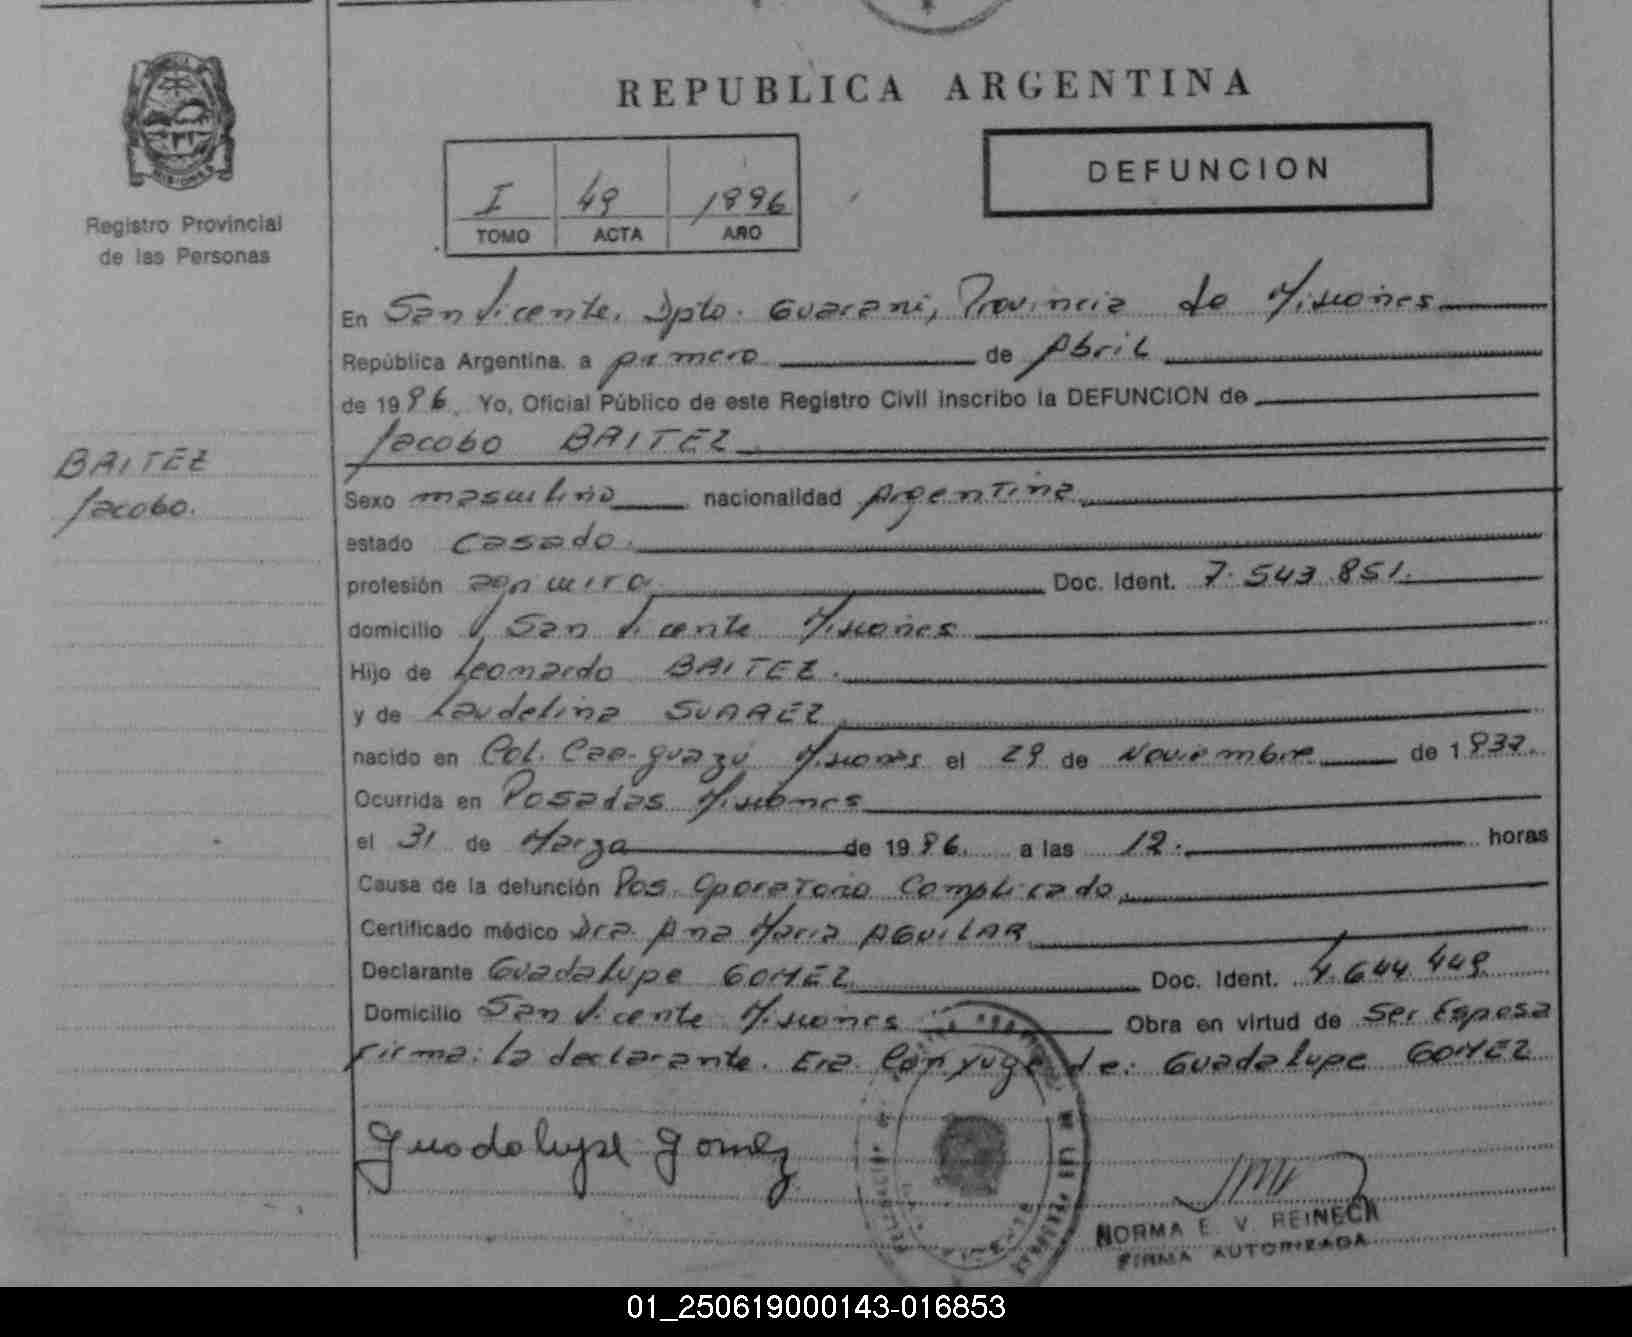 REPUBLICA ARGENTINA
DEFUNCION
I 49 1996
TOMO ACTA AÑO
MISIONES
Registro Provincial
de las Personas
En San Vicente, Dpto. Guarani, Provincia de Misiones
República Argentina. a primero de Abril
de 1996. Yo, Oficial Público de este Registro Civil inscribo la DEFUNCION de
Jacobo BAITEZ
BAITEZ
Jacobo.
Sexo masculino nacionalidad Argentina
estado Casado.
profesión Doc. Ident. 7.543.851.
domicilio San Vicente Misiones
Hijo de Leonardo BAITEZ.
y de Laudelina SUAREZ
nacido en Col. Caa-guazú Misiones el 29 de Noviembre de 1937.
Ocurrida en Posadas Misiones
el 31 de Marzo de 1996. a las 12. horas
Causa de la defunción Pos. Operatorio Complicado.
Certificado médico Dra. Ana Maria AGUILAR
Declarante Guadalupe GOMEZ Doc. Ident. 4.644.449
Domicilio San Vicente Misiones Obra en virtud de Ser Esposa
Firma: la declarante. Era Conyuge de: Guadalupe GOMEZ
Guadalupe Gomez
NORMA E. V. REINECK
FIRMA AUTORIZADA
01_250619000143-016853